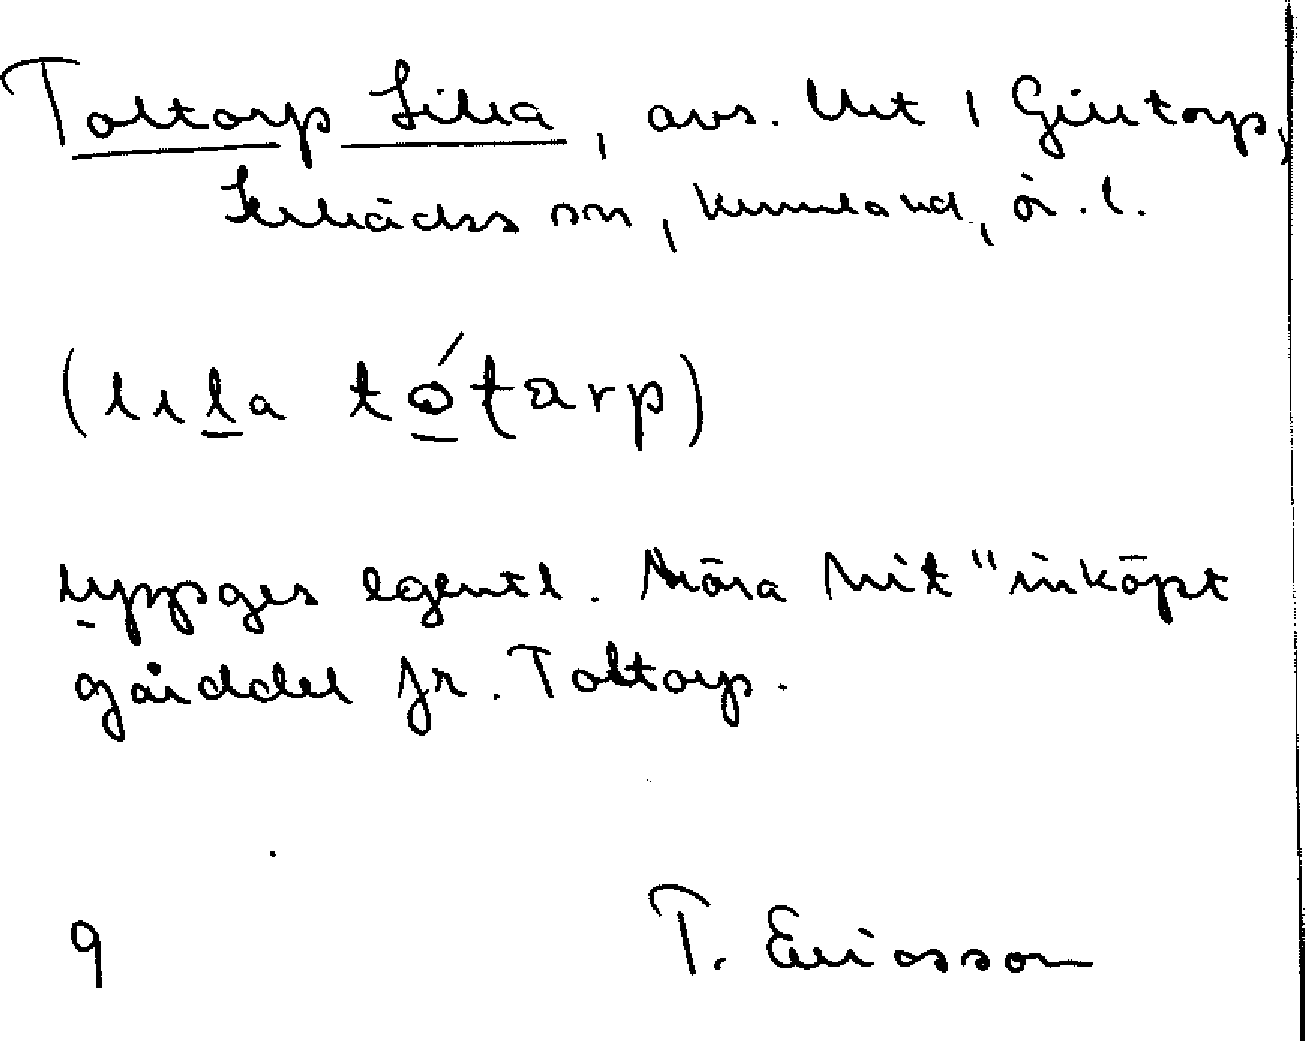 Toltorp Lilla, avs. lht i Gilltorp,
Lerbäcks sn, Kumla hd, ör. l.
(lila tó̲tarp)
uppges egentl. höra till "inköpt
gårddel fr. Toltorp.
9 T. Ericsson